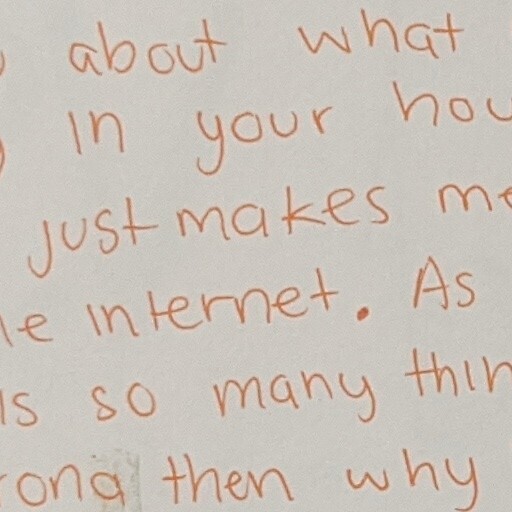 about what
in your hou
just makes me
le internet. As
is so many thin
rong then why